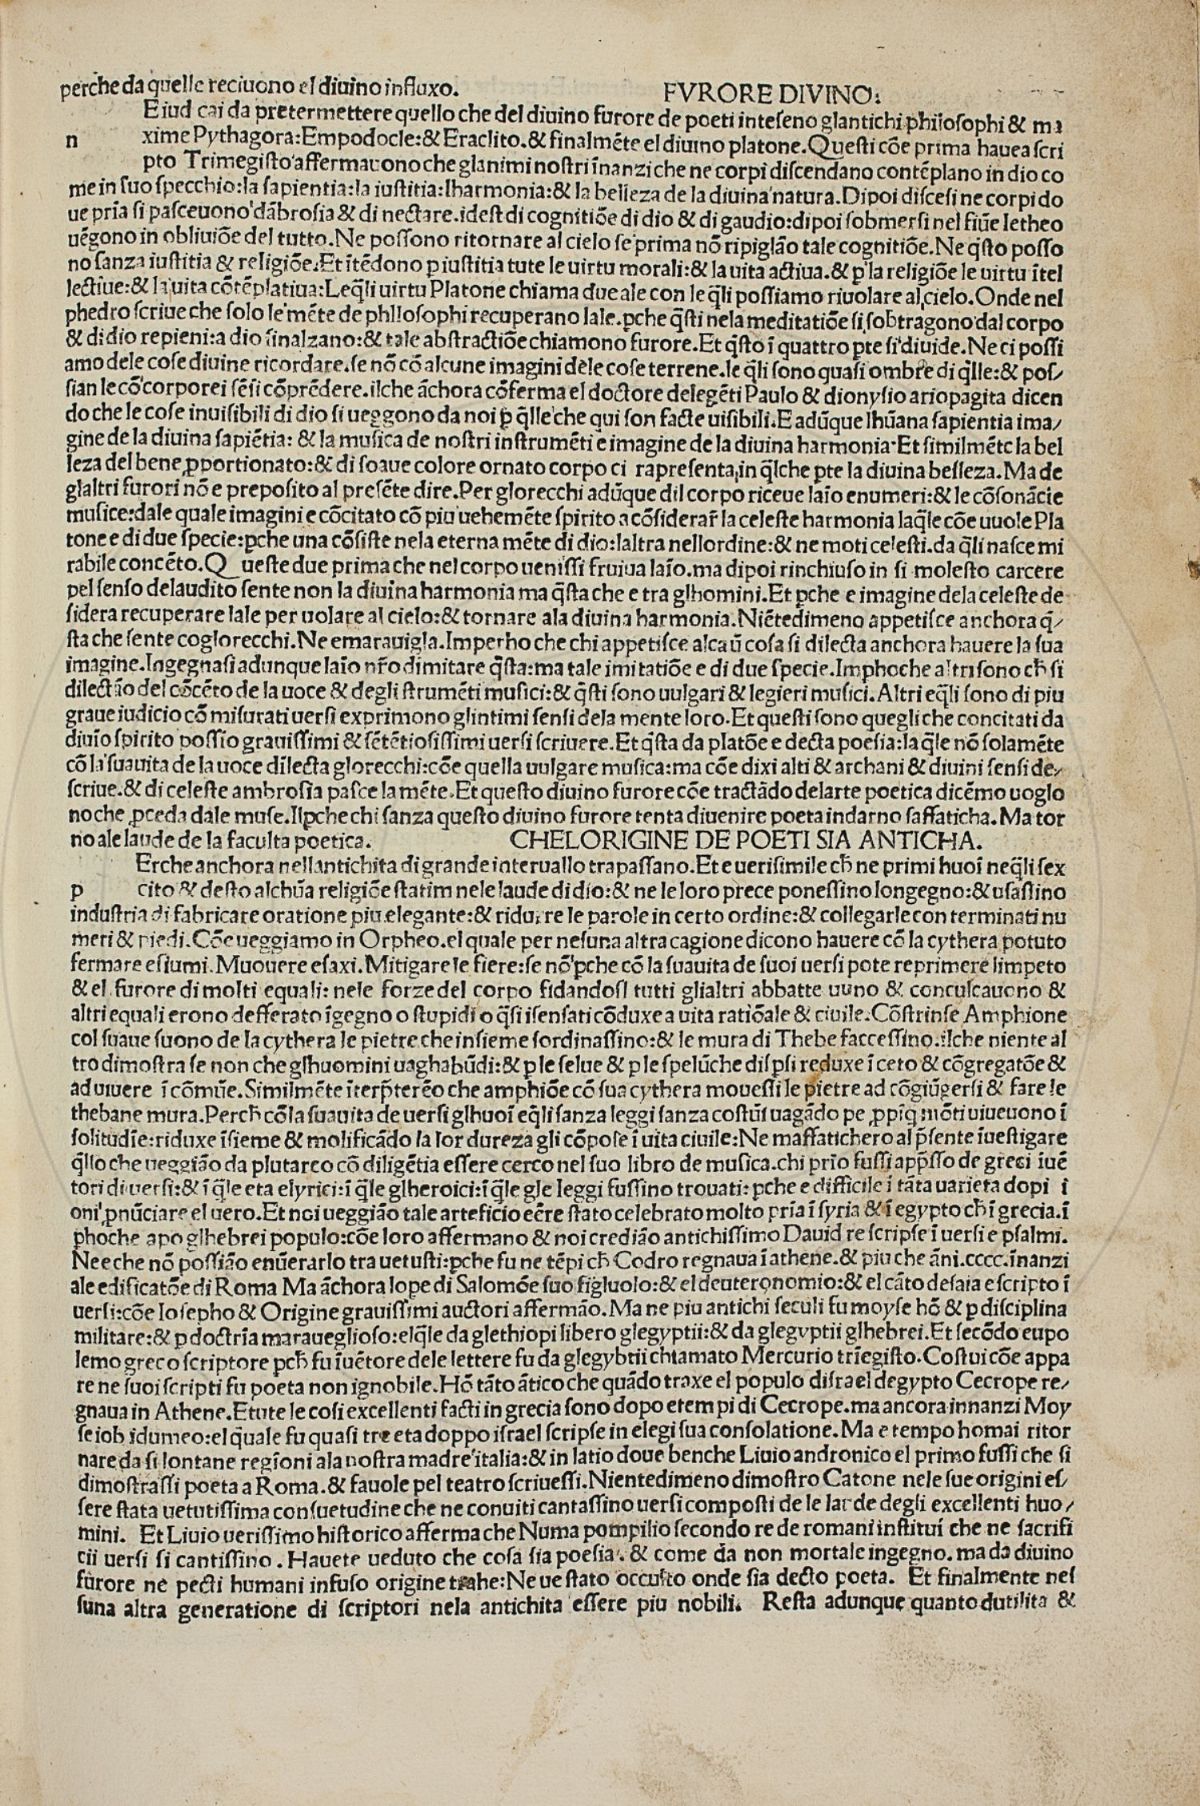 perche da quelle reciuono el diuino influxo. FVRORE DIVINO:
Eiud cai da pretermettere quello che del diuino furore de poeti inteseno glantichi philosophi & ma
n xime Pythagora: Empodocle: & Eraclito. & finalmēte el diuino platone. Questi cōe prima hauea scri
pto Trimegisto affermauono che glanimi nostri īnanzi che ne corpi discendano contēplano in dio co
me in suo specchio: la sapientia: la iustitia: lharmonia: & la belleza de la diuina natura. Dipoi discesi ne corpi do
ue pria si pasceuono dābrosia & di nectare. idest di cognitiōe di dio & di gaudio: dipoi sobmersi nel fiūe letheo
uēgono in obliuiōe del tutto. Ne possono ritornare al cielo se prima nō ripiglāo tale cognitiōe. Ne q̄sto posso
no sanza iustitia & religiōe. Et ītēdono p iustitia tute le uirtu morali: & la uita actiua. & p̱ la religiōe le uirtu ītel
lectiue: & la uita cōtēplatiua: Leq̄li uirtu Platone chiama due ale con le q̄li possiamo riuolare al cielo. Onde nel
phedro scriue che solo le mēte de phllosophi recuperano lale. pche q̄sti nela meditatiōe si sobtragono dal corpo
& di dio repieni: a dio sinalzano: & tale abstractiōe chiamono furore. Et q̄sto ī quattro pte si diuide. Ne ci possi
amo dele cose diuine ricordare. se nō cō alcune imagini dele cose terrene. le q̄li sono quasi ombre di q̄lle: & pos⸗
sian le cō corporei sēsi cōprēdere. ilche āchora cōferma el doctore delegēti Paulo & dionysio ariopagita dicen
do che le cose inuisibili di dio si ueggono da noi p̱ q̄lle che qui son facte uisibili. E adūque lhūana sapientia ima⸗
gine de la diuina sapiētia: & la musica de nostri instrumēti e imagine de la diuina harmonia. Et similmēte la bel
leza del bene ꝓportionato: & di soaue colore ornato corpo ci rapresenta, in q̄lche pte la diuina belleza. Ma de
glaltri furori nō e preposito al presēte dire. Per glorecchi adūque dil corpo riceue laīo enumeri: & le cōsonācie
musice: dale quale imagini e cōcitato cō piu uehemēte spirito a cōsiderar̄ la celeste harmonia laq̄le cōe uuole Pla
tone e di due specie: pche una cōsiste nela eterna mēte di dio: laltra nellordine: & ne moti celesti. da q̄li nasce mi
rabile concēto. Queste due prima che nel corpo uenissi fruiua laīo. ma dipoi rinchiuso in si molesto carcere
pel senso delaudito sente non la diuina harmonia ma q̄sta che e tra glhomini. Et pche e imagine dela celeste de⸗
sidera recuperare lale per uolare al cielo: & tornare ala diuina harmonia. Niētedimeno appetisce anchora q̄⸗
sta che sente coglorecchi. Ne emarauigla. Imperho che chi appetisce alcaū cosa si dilecta anchora hauere la sua
imagine. Ingegnasi adunque laīo nr̄o dimitare q̄sta: ma tale imitatiōe e di due specie. Imphoche altri sono ch̄ si
dilectāo del cōcēto de la uoce & degli strumēti musici: & q̄sti sono uulgari & legieri musici. Altri eq̄li sono di piu
graue iudicio cō misurati uersi exprimono glintimi sensi dela mente loro. Et questi sono quegli che concitati da
diuīo spirito possīo grauissimi & sētētiosissimi uersi scriuere. Et q̄sta da platōe e decta poesia: la q̄le nō solamēte
cō la suauita de la uoce dilecta glorecchi: cōe quella uulgare musica: ma cōe dixi alti & archani & diuini sensi de⸗
scriue. & di celeste ambrosia pasce la mēte. Et questo diuino furore cōe tractādo delarte poetica dicēmo uoglo
no che ꝓceda dale muse. Ilpche chi sanza questo diuino furore tenta diuenire poeta indarno saffaticha. Ma tor
no ale laude de la faculta poetica. CHELORIGINE DE POETI SIA ANTICHA.
Erche anchora nellantichita di grande interuallo trapassano. Et e uerisimile ch̄ ne primi huoī neq̄li sex
p cito & desto alchūa religiōe statim nele laude di dio: & ne le loro prece ponessino longegno: & usassino
industria di fabricare oratione piu elegante: & ridurre le parole in certo ordine: & collegarle con terminati nu
meri & piedi. Cōe ueggiamo in Orpheo. el quale per nesuna altra cagione dicono hauere cō la cythera potuto
fermare e fiumi. Muouere e saxi. Mitigare le fiere: se nō pche cō la suauita de suoi uersi pote reprimere limpeto
& el furore di molti equali: nele forze del corpo fidandosi tutti glialtri abbatte uuno & conculcauono &
altri equali erono defferato īgegno o stupidi o q̄si isensati cōduxe a uita ratiōale & ciuile. Cōstrinse Amphione
col suaue suono de la cythera le pietre che insieme sordinassino: & le mura di Thebe faccessino. ilche niente al
tro dimostra se non che glhuomini uaghabūdi: & p le selue & p le spelūche dispsi reduxe ī ceto & cōgregatōe &
ad uiuere ī cōmūe. Similmēte īterp̄terēo che amphiōe cō sua cythera mouessi le pietre ad cōgiūgersi & fare le
thebane mura. Perch̄ cō la suauita de uersi glhuoī eq̄li sanza leggi sanza costūi uagādo pe ꝓpiq̄ mōti uiueuono ī
solitudīe: riduxe īsieme & molificādo la lor dureza gli cōpose ī uita ciuile: Ne maffatichero al p̄sente īuestigare
q̄llo che ueggiāo da plutarco cō diligētia essere cerco nel suo libro de musica. chi prīo fussi app̄sso de greci īuē
tori di uersi: & ī q̄le eta e lyrici: ī q̄le glheroici: ī q̄le gle leggi fussino trouati: pche e difficile ī tāta uarieta dopi ī
oni ꝓnūciare el uero. Et noi ueggiāo tale arteficio eēre stato celebrato molto pria ī syria & ī egypto ch̄ ī grecia. ī
phoche apo glhebrei populo: cōe loro affermano & noi crediāo antichissimo Dauid re scripse ī uersi e psalmi.
Nee che nō possiāo enūerarlo tra uetusti: pche fu ne tēpi ch̄ Codro regnaua ī athene. & piu che āni. cccc. īnanzi
ale edificatōe di Roma Ma āchora lope di Salomōe suo figluolo: & el deuteronomio: & el cāto desaia e scripto ī
uersi: cōe Iosepho & Origine grauissimi auctori affermāo. Ma ne piu antichi seculi fu moyse hō & p disciplina
militare: & p doctrīa maraueglioso: elq̄le da glethiopi libero glegyptii: & da glegyptii glhebrei. Et secōdo eupo
lemo greco scriptore pch̄ fu īuētore dele lettere fu da glegybtii chiamato Mercurio trīegisto. Costui cōe appa
re ne suoi scripti fu poeta non ignobile. Hō tāto ātico che quādo traxe el populo disrael degypto Cecrope re⸗
gnaua in Athene. E tute le cosi excellenti facti in grecia sono dopo e tempi di Cecrope. ma ancora innanzi Moy
se iob idumeo: el quale fu quasi tre eta doppo israel scripse in elegi sua consolatione. Ma e tempo homai ritor
nare da si lontane regioni ala nostra madre italia: & in latio doue benche Liuio andronico el primo fussi che si
dimostrassi poeta a Roma. & fauole pel teatro scriuessi. Nientedimeno dimostro Catone nele sue origini es⸗
sere stata uetutissima consuetudine che ne conuiti cantassino uersi composti de le laude degli excellenti huo⸗
mini. Et Liuio uerissimo historico afferma che Numa pompilio secondo re de romani instituí che ne sacrifi
cii uersi si cantissino. Hauete ueduto che cosa sia poesia. & come da non mortale ingegno. ma da diuino
furore ne pecti humani infuso origine trahe: Ne ue stato occulto onde sia decto poeta. Et finalmente nes
suna altra generatione di scriptori nela antichita essere piu nobili. Resta adunque quanto dutilita &